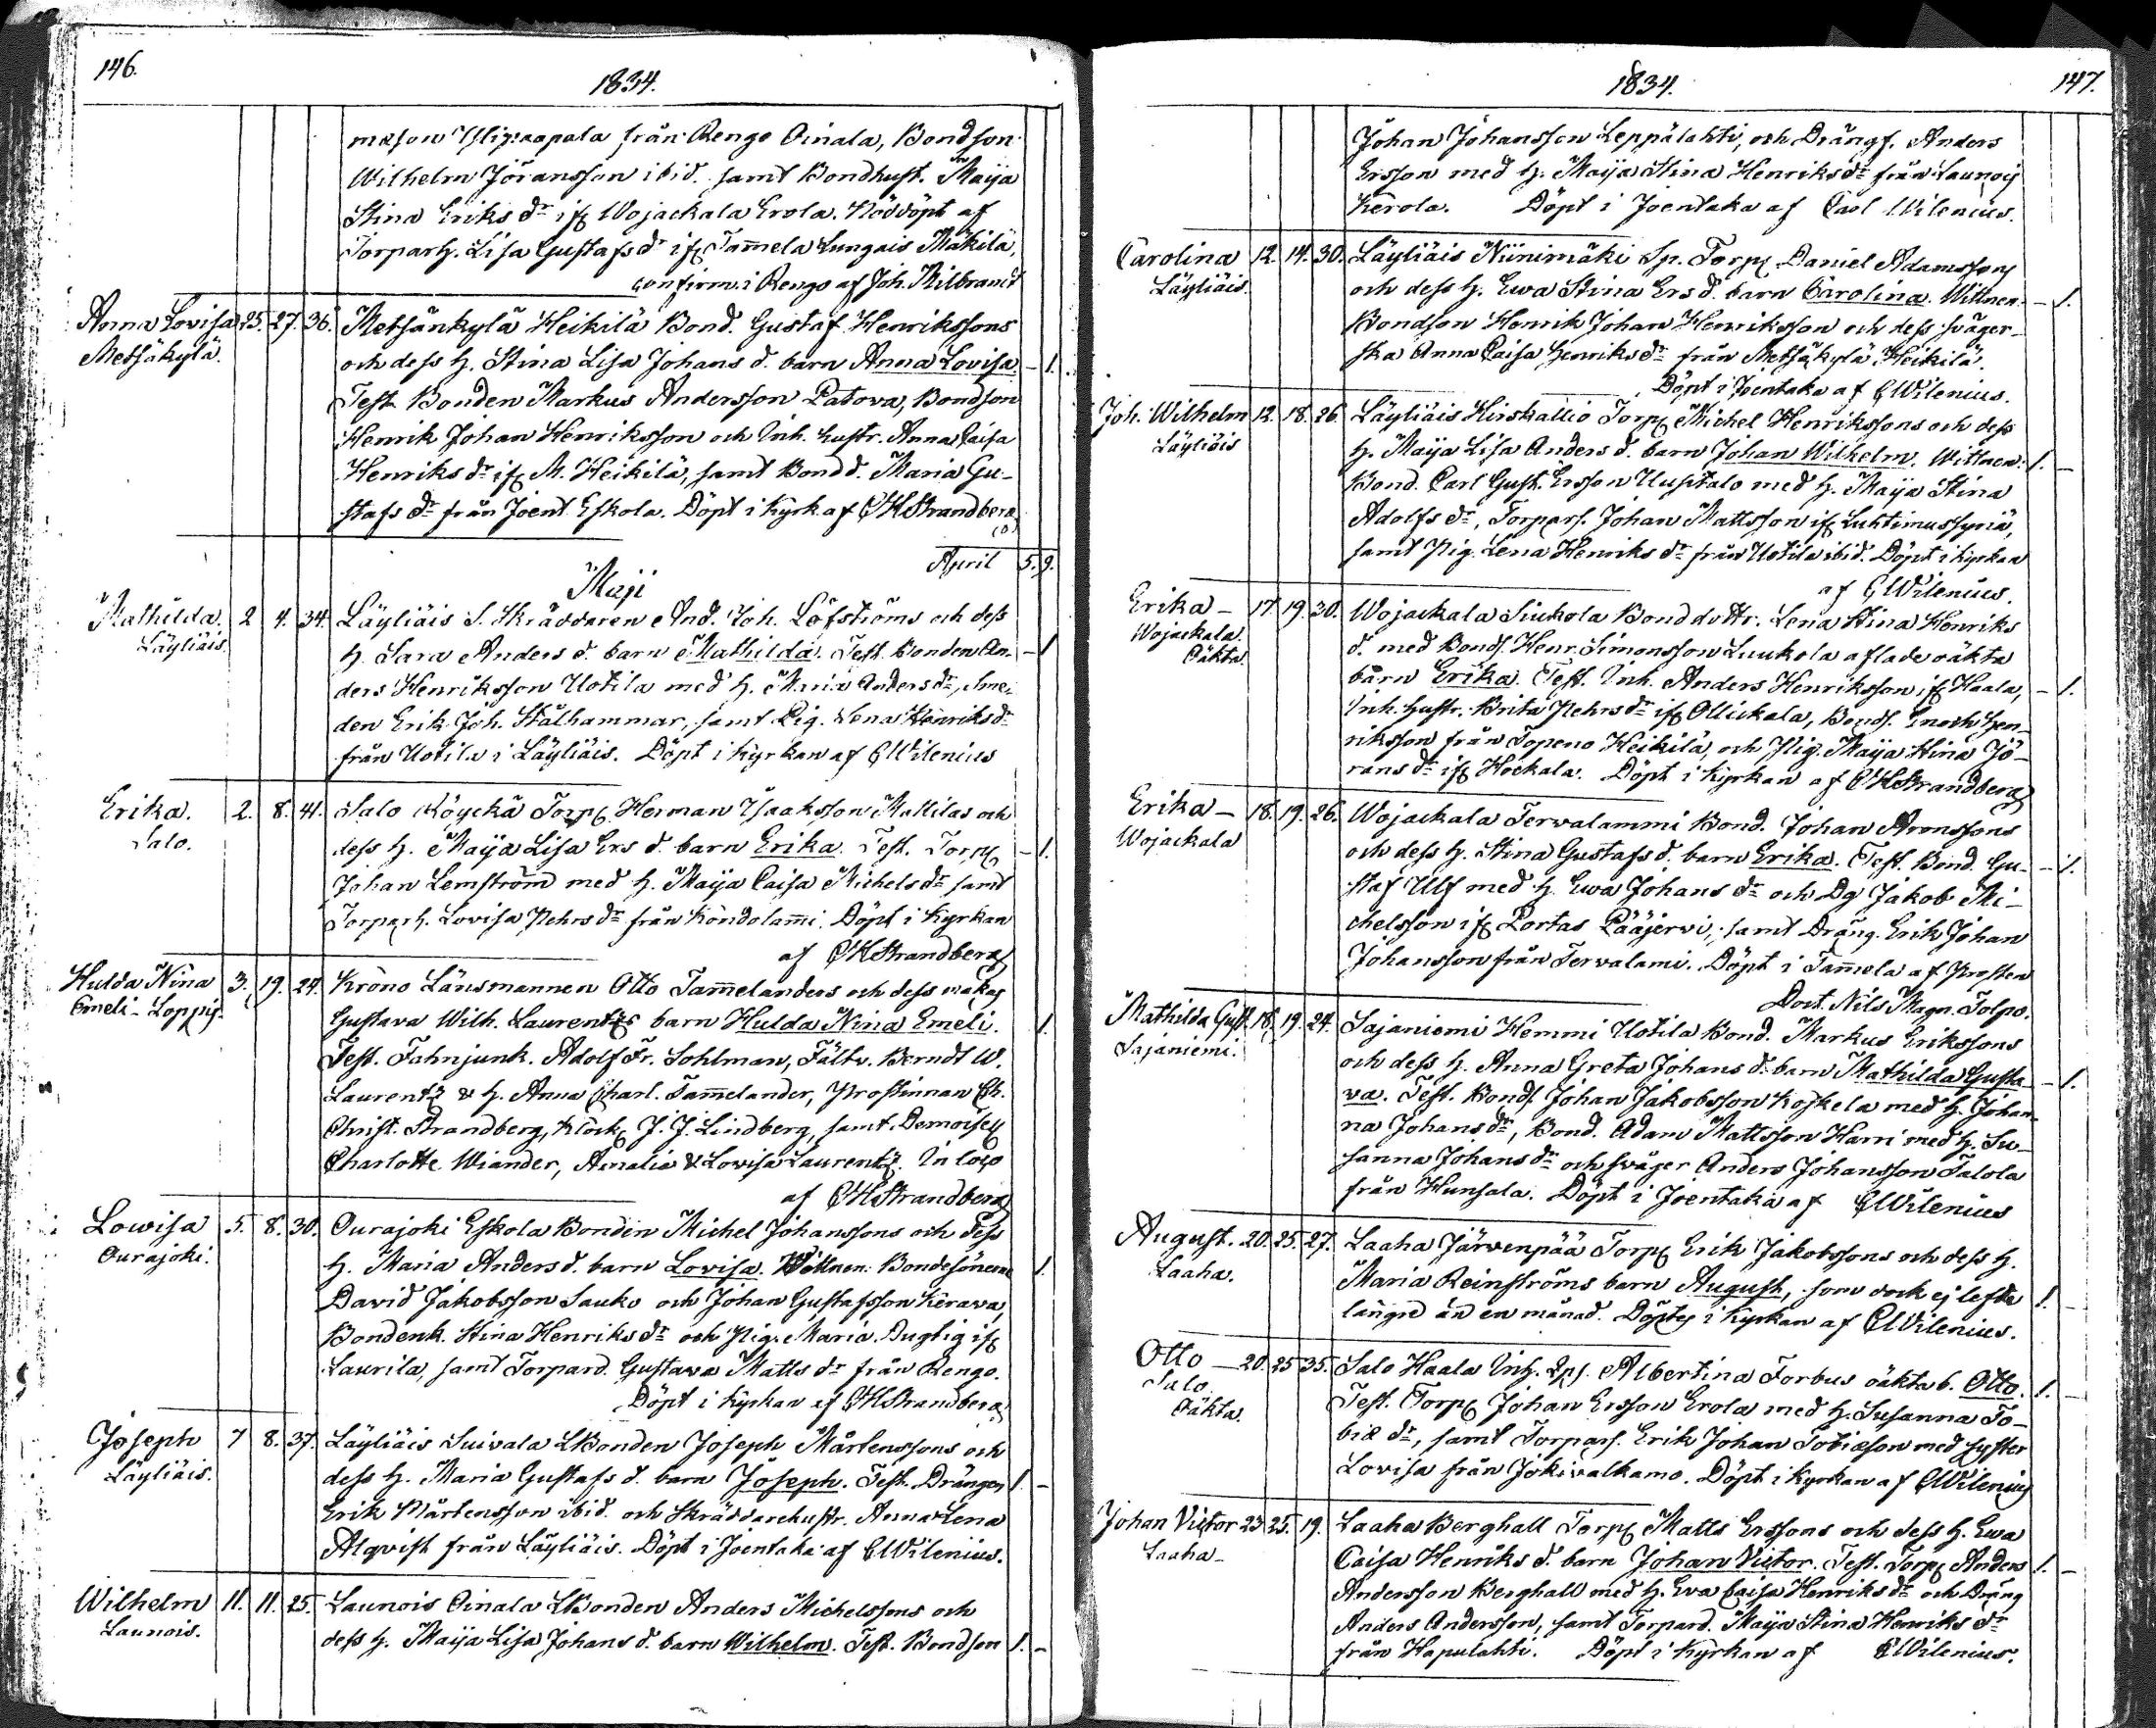 146.
1834.
från Rengo Oinala, Bondson
Wilhelm Jöransson ibid. samt Bondhust. Maija
Stina Eriks dr if Wojackala Erola. Nöddöpt af
Torparh. Lisa Gustafs dr if Tam̄ela Lungais Mäkilä,
confirm. i Rengo af Joh. Milbrandt
Anna Lovisa 25. 27. 36. Metsänkylä Heikilä Bond. Gustaf Henrikssons
Metsäkylä. och dess h. Stina Lisa Johans d. barn Anna Lovisa - 1.
Test. Bonden Markus Andersson Patova, Bondson
Henrik Johan Henriksson och Inh. hustr. Anna Caisa
Henriks dr if M. Heikilä, samt Bond d. Maria Gu-
stafs dr från Joent. Eskola. Döpt i Kyrk. af CHStrandberg
April 5. 9.
Maji
Mathilda. 2 4. 34. Läyliäis S. Skräddaren And. Joh. Löfströms och dess
Läyliäis. h. Sara Anders d. barn Mathilda. Test. Bonden An- - 1
ders Henriksson Uotila med h. Maria Anders dr, Sme-
den Erik Joh. Stålhammar, samt Pig. Lena Henriks dr
från Uotila i Läyliäis. Döpt i Kyrkan af CWilenius
Erika. 2. 8. 41. Salo Köyckä Torp. Herman Isaaksson Mattilas och
Salo. dess h. Maija Lisa Ers d. barn Erika. Test. Torp. - 1.
Johan Lemström med h. Maija Caisa Michels dr samt
Torparh. Lovisa Pehrs dr från Kondolam̄i. Döpt i Kyrkan
af CHStrandberg
Hulda Nina 3. 19. 24. Krono Länsmannen Otto Tam̄elanders och dess makas
Emeli - Loppis. Gustava Wilh. Laurentzs barn Hulda Nina Emeli. 1.
Test. Fahnjunk. Adolf Fr. Sohlman, Fältv. Berndt W.
Laurentz & h. Anna Charl. Tam̄elander, Prostinnan Ch.
Christ. Strandberg, Klock. J. J. Lindberg, samt Demoisell
Charlotte Wiander, Amalia & Lovisa Laurentz. In loco
af CHStrandberg
Lowisa 5. 8. 30. Ourajoki Eskola Bonden Michel Johanssons och dess
Ourajoki. h. Maria Anders d. barn Lovisa. Wittnen: Bondesönerne 1.
David Jakobsson Sauko och Johan Gustafsson Kerava,
Bondenk. Stina Henriks dr och Pig. Maria Dugtig if
Laurila, samt Torpard. Gustava Matts dr från Rengo.
Döpt i Kyrkan af CHStrandberg
Joseph 7 8. 37. Läyliäis Suivala LBonden Joseph Mårtenssons och
Läyliäis. dess h. Maria Gustafs d. barn Joseph. Test. Drängen 1. -
Erik Mårtensson ibid. och Skräddarehustr. Anna Lena
Alqvist från Läyliäis. Döpt i Joentaka af CWilenius.
Wilhelm 11. 11. 25. Launois Oinala LBonden Anders Michelssons och
Launois. dess h. Maija Lisa Johans d. barn Wilhelm. Test. Bondson 1. -
1834.
147.
Johan Johansson Leppälahti, och Drängs. Anders
Ersson med h. Maija Stina Henriks dr från Launois
Kerola. Döpt i Joentaka af Carl Wilenius.
Carolina 12. 14. 30. Läyliäis Niinimäki Sp. Torp. Daniel Adamssons
Läyliäis. och dess h. Ewa Stina Ers d. barn Carolina. Wittnen. - 1.
Bondson Henrik Johan Henriksson och dess sväger-
ska Anna Caisa Henriks dr från Metsäkylä Heikilä.
Döpt i Joentaka af CWilenius.
Joh. Wilhelm 12. 18. 26. Läyliäis Kirskallio Torp. Michel Henrikssons och dess
Läyliäis h. Maija Lisa Anders d. barn Johan Wilhelm. Wittnen: 1. -
Bond. Carl Gust. Ersson Uusitalo med h. Maija Stina
Adolfs dr, Torpars. Johan Mattsson if Luhtimussyriä,
samt Pig. Lena Henriks dr från Uotila ibid. Döpt i Kyrkan
af CWilenius.
Erika - 17. 19. 30. Wojackala Siukola Bonddottr. Lena Stina Henriks
Wojackala. d. med Bonds. Henr. Simonsson Luukola aflade oäkta
Oäkta. barn Erika. Test. Inh. Anders Henriksson if Haala, - 1.
Inh. hustr. Brita Pehrs dr if Ollickala, Bonds. Enoch Hen-
riksson från Topeno Heikilä, och Pig. Maija Stina Jö-
rans dr if Hockala. Döpt i Kyrkan af CHStrandberg
Erika - 18. 19. 26. Wojackala Tervalammi Bond. Johan Aronssons
Wojackala och dess h. Stina Gustafs d. barn Erika. Test. Bond. Gu- - 1.
staf Ulf med h. Ewa Johans dr och Dg Jakob Mi-
chelsson if Portas Pääjervi, samt Dräng. Erik Johan
Johansson från Tervalam̄i. Döpt i Tam̄ela af Prosten
Doct. Nils Magn. Tolpo.
Mathilda Gust. 18. 19. 24. Sajaniemi Hemmi Uotila Bond. Markus Erikssons
Sajaniemi. och dess h. Anna Greta Johans d. barn Mathilda Gusta- - 1.
va. Test. Bonds. Johan Jakobsson Koskela med h. Johan-
na Johans dr, Bond. Adam Mattsson Harri med h. Su-
sanna Johans dr och svåger Anders Johansson Talola
från Hunsala. Döpt i Joentaka af CWilenius
August. 20. 25. 27. Laaha Järvenpää Torp. Erik Jakobssons och dess h.
Laaha. Maria Reinströms barn August, som dock ej lefde 1. -
längre än en månad. Döptes i Kyrkan af CWilenius.
Otto - 20. 25 35. Salo Haala Inh. Albertina Forbus oäkta b. Otto. 1. -
Salo. Test. Torp. Johan Ersson Erola med h. Susanna To-
Oäkta. biæ dr, samt Torpars. Erik Johan Tobiæson med syster
Lovisa från Jokivalkamo. Döpt i Kyrkan af CWilenius
Johan Victor 23 25. 19. Laaha Berghall Torp. Matts Erssons och dess h. Ewa
Laaha - Caisa Henriks d. barn Johan Victor. Test. Torp. Anders 1. -
Andersson Berghall med h. Eva Caisa Henriks dr och Dräng
Anders Andersson, samt Torpard. Maija Stina Henriks dr
från Hapulahti. Döpt i Kyrkan af CWilenius.